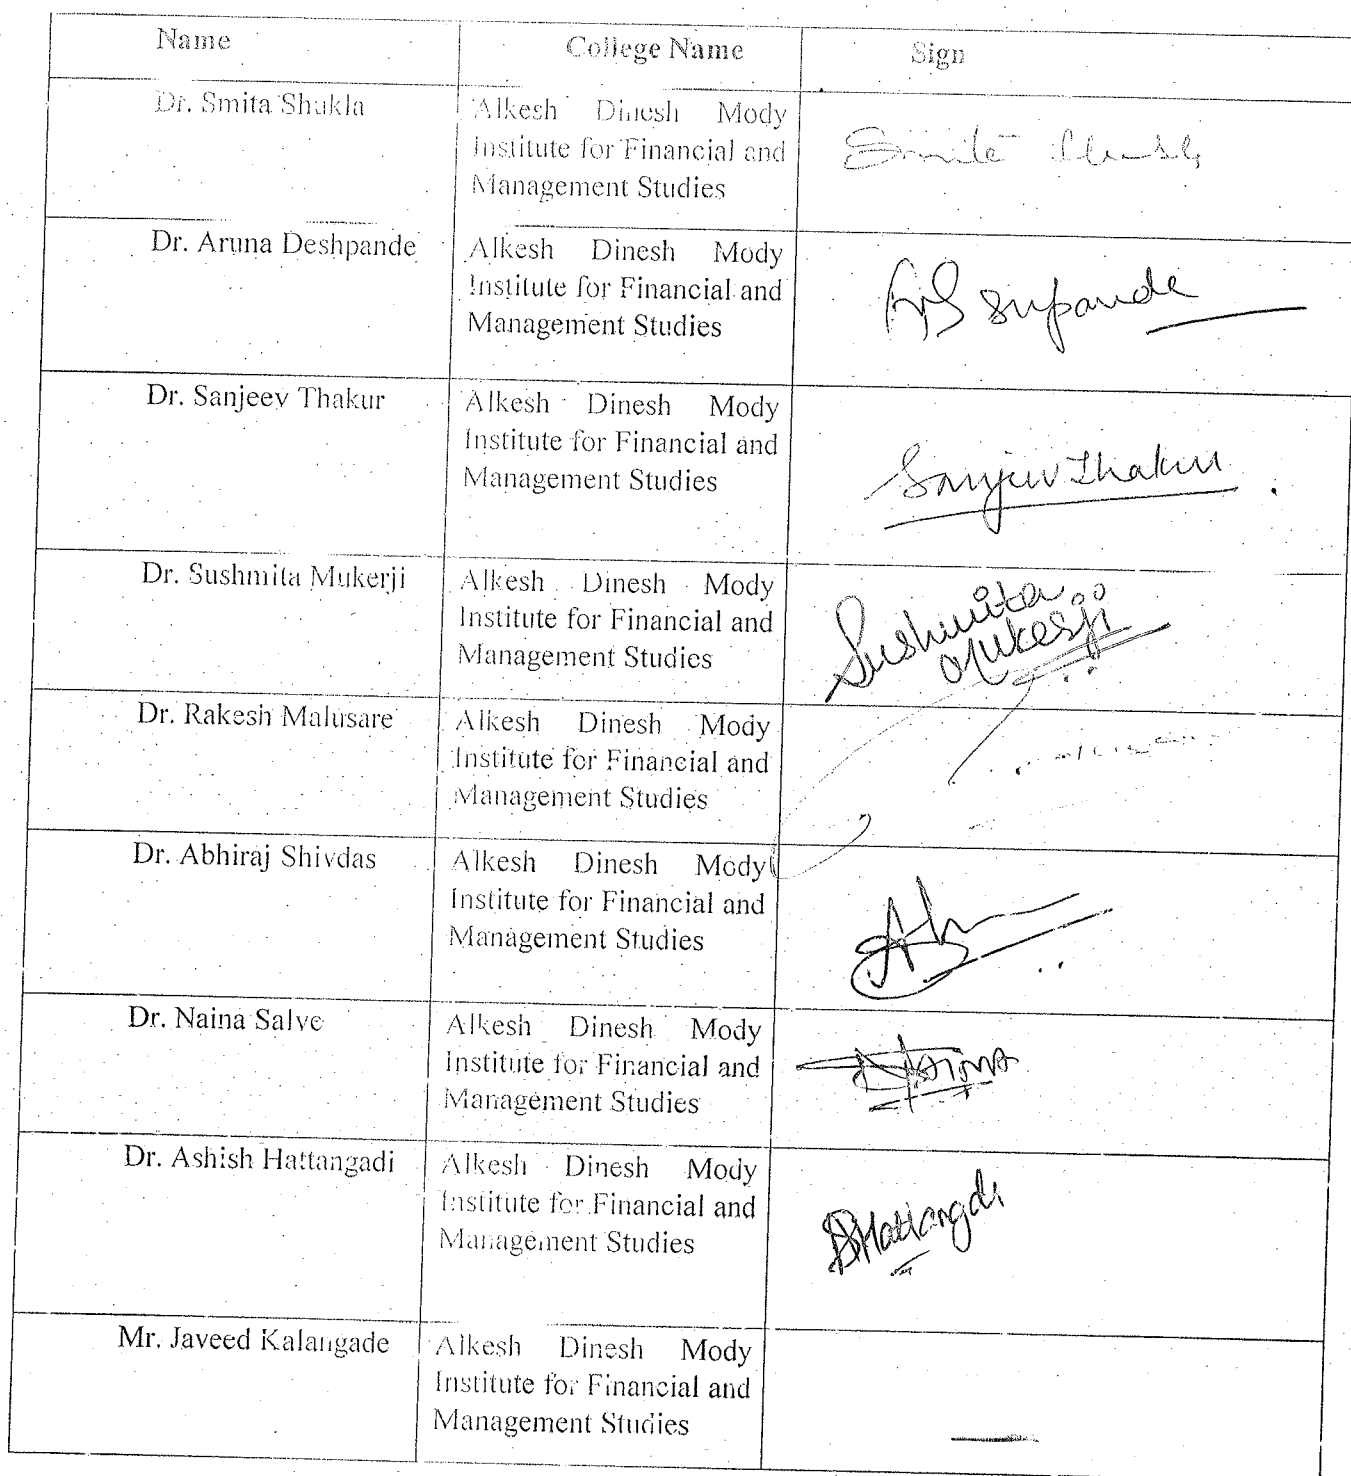 Name College Name Sign
Dr. Smita Shukla
Alkesh Dinesh Mody
Institute for Financial and
Management Studies
Smita
Dr. Aruna Deshpande
Alkesh Dinesh Mody
Institute for Financial and
Management Studies
Dr. Sanjeev Thakur
Alkesh Dinesh Mody
Institute for Financial and
Management Studies
Sanjeev Thakur
Dr. Sushmita Mukerji
Alkesh Dinesh Mody
Institute for Financial and
Management Studies
Sushmita
Mukerji
Dr. Rakesh Malusare
Alkesh Dinesh Mody
Institute for Financial and
Management Studies
Dr. Abhiraj Shivdas
Alkesh Dinesh Mody
Institute for Financial and
Management Studies
Dr. Naina Salve
Alkesh Dinesh Mody
Institute for Financial and
Management Studies
Naina
Dr. Ashish Hattangadi
Alkesh Dinesh Mody
Institute for Financial and
Management Studies
Mr. Javeed Kalangade
Alkesh Dinesh Mody
Institute for Financial and
Management Studies